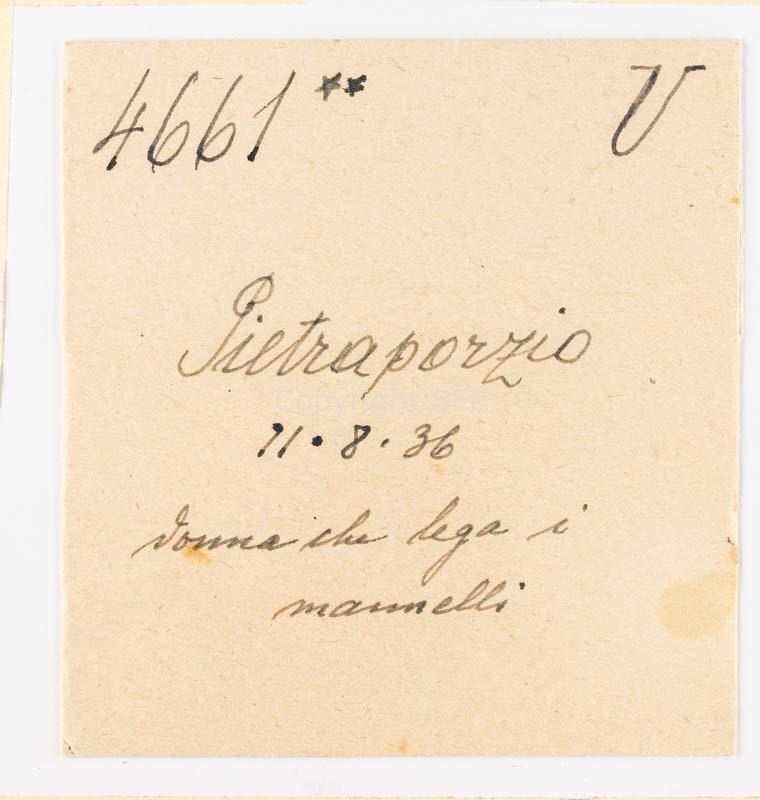 4661** V
Pietraporzio
11.8.36
donna che lega i
mannelli